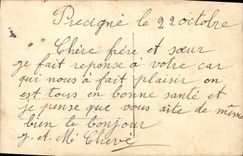 Precigné le 22 octobre
Chère frère et sœur
je fait reponse à votre car
qui nous à fait plaisir on
est tous en bonne santé et
je pense que vous aite de même
bien le bonjour
J. et Me Chevé